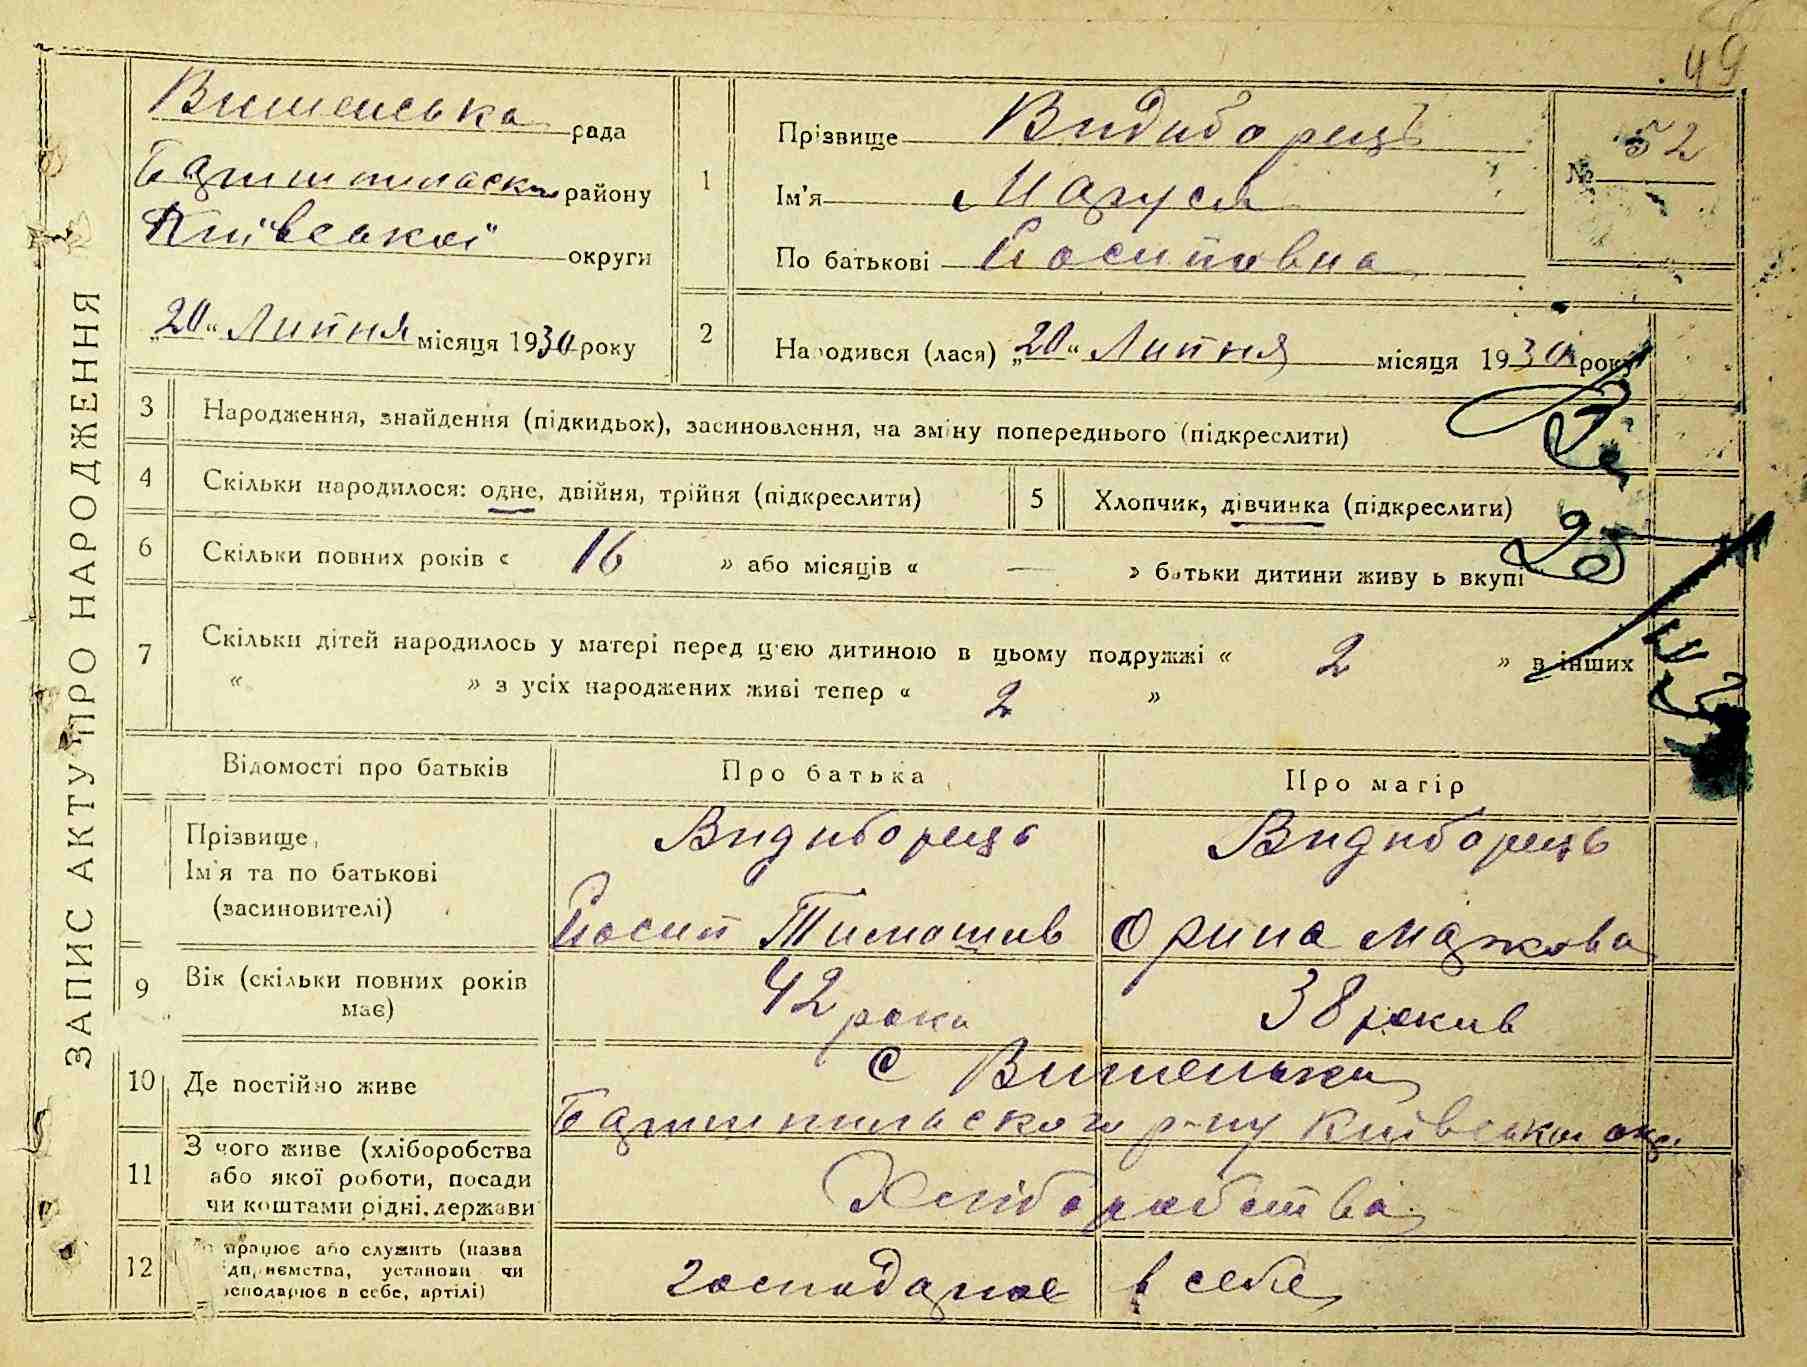 49
ЗАПИС АКТУ ПРО НАРОДЖЕННЯ
Вишенська рада
Баришпильского району
Київської округи
„20“ Липня місяця 1930 року
1
Прізвище Видиборець
Ім'я Маруся
По батькові Йосиповна
№ 52
2
Народився (лася) „20“ Липня місяця 1930 року
3 Народження, знайдення (підкидьок), засиновлення, на зміну попереднього (підкреслити)
4 Скільки народилося: одне, двійня, трійня (підкреслити)
5 Хлопчик, дівчинка (підкреслити)
6 Скільки повних років « 16 » або місяців « — » батьки дитини живуть вкупі
7 Скільки дітей народилось у матері перед цією дитиною в цьому подружжі « 2 » в інших
« » з усіх народжених живі тепер « 2 »
Відомості про батьків Про батька Про матір
Прізвище, Видиборець Видиборець
Ім'я та по батькові
(засиновителі) Йосип Тимошив Орина Маркова
9 Вік (скільки повних років має) 42 роки 38 рокив
10 Де постійно живе с Вишеньки
Баришпильского р-ну Київськои окр.
11 З чого живе (хліборобства
або якої роботи, посади
чи коштами рідні, держави Хліборобства
12 працює або служить (назва
підприємства, установи чи
господарює в себе, артілі) господарює в себе